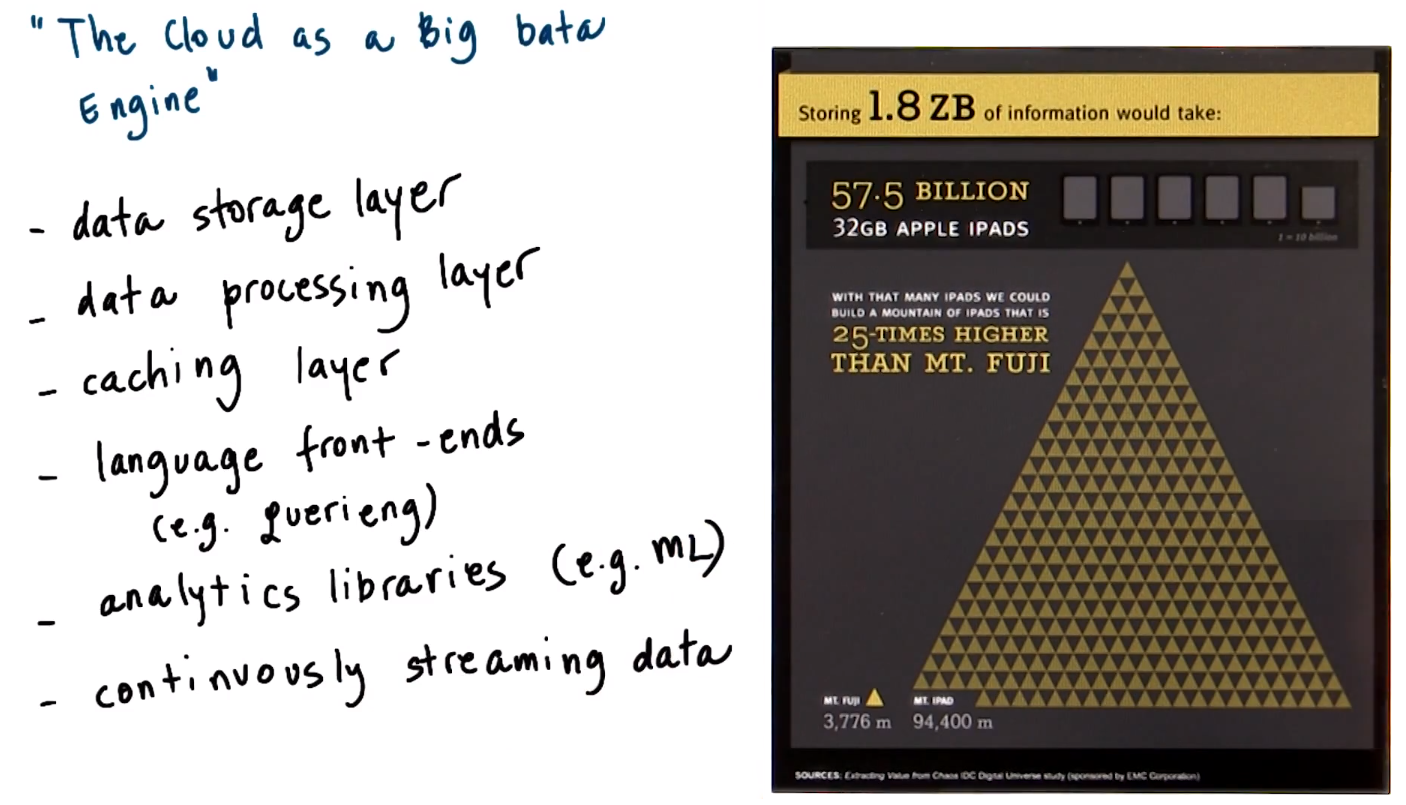 "The Cloud as a Big bata
Engine"
- data storage layer
- data processing layer
- caching layer
- language front-ends
(e.g. querieng)
- analytics libraries (e.g. ML)
- continuously streaming data
Storing 1.8 ZB of information would take:
57.5 BILLION
32GB APPLE IPADS
1 = 10 billion
WITH THAT MANY IPADS WE COULD
BUILD A MOUNTAIN OF IPADS THAT IS
25-TIMES HIGHER
THAN MT. FUJI
MT. FUJI
3,776 m
MT. IPAD
94,400 m
SOURCES: Extracting Value from Chaos IDC Digital Universe study (sponsored by EMC Corporation)